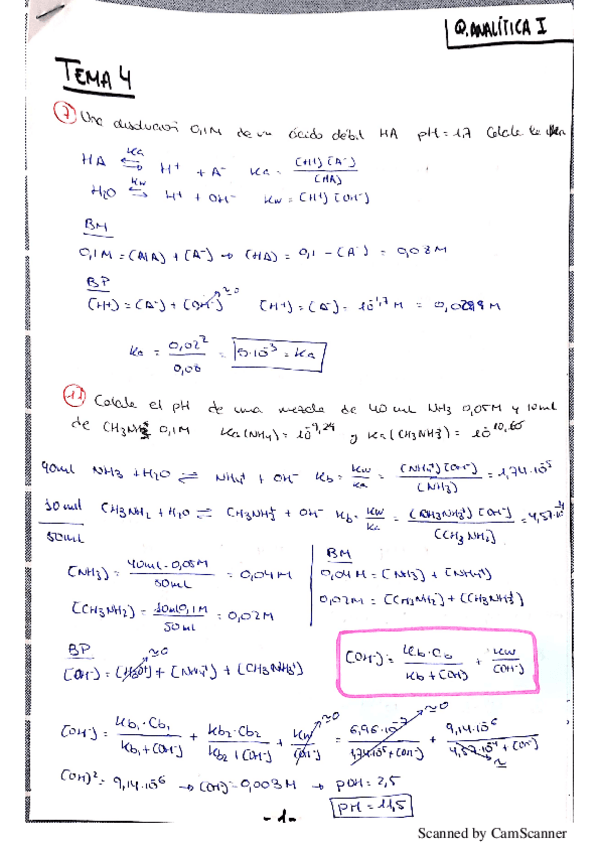 Q.ANALÍTICA I
TEMA 4
7 Una disolución 0,1M de un ácido débil HA pH=1,7 Calcule
HA ⇌ (Ka) H⁺ + A⁻ Ka = [H⁺][A⁻] / [HA]
H₂O ⇌ (Kw) H⁺ + OH⁻ Kw = [H⁺][OH⁻]
BM
0,1M = [HA] + [A⁻] → [HA] = 0,1 - [A⁻] = 0,08M
BP
[H⁺] = [A⁻] + [OH⁻] ≈0 [H⁺] = [A⁻] = 10⁻¹,⁷ M = 0,0299M
Ka = 0,02² / 0,08 = 5·10⁻³ = Ka
11 Calcule el pH de una mezcla de 40 mL NH3 0,05M y 10mL
de CH3NH2 0,1M Ka(NH4) = 10⁻⁹,²⁴ y Ka(CH3NH3) = 10⁻¹⁰,⁶⁵
40ml NH3 + H2O ⇌ NH4⁺ + OH⁻ Kb = Kw/Ka = [NH4⁺][OH⁻] / [NH3] = 1,74·10⁻⁵
10ml CH3NH2 + H2O ⇌ CH3NH3⁺ + OH⁻ Kb = Kw/Ka = [CH3NH3⁺][OH⁻] / [CH3NH2] = 4,57·10⁻⁴
50ml
[NH3] = 40ml·0,05M / 50mL = 0,04M
[CH3NH2] = 10ml·0,1M / 50mL = 0,02M
BM
0,04M = [NH3] + [NH4⁺]
0,02M = [CH3NH2] + [CH3NH3⁺]
BP
[OH⁻] = [H3O⁺] ≈0 + [NH4⁺] + [CH3NH3⁺]
[OH⁻] = Kb·Cb / Kb + [OH⁻] + Kw / [OH⁻]
[OH⁻] = Kb₁·Cb₁ / Kb₁ + [OH⁻] + Kb₂·Cb₂ / Kb₂ + [OH⁻] + Kw / [OH⁻] ≈0 = 6,96·10⁻⁷ / 1,74·10⁻⁵ + [OH⁻] ≈0 + 9,14·10⁻⁶ / 4,57·10⁻⁴ + [OH⁻]
[OH]² = 9,14·10⁻⁶ → [OH⁻] = 0,003M → pOH = 2,5
pH = 11,5
- 1 -
Scanned by CamScanner